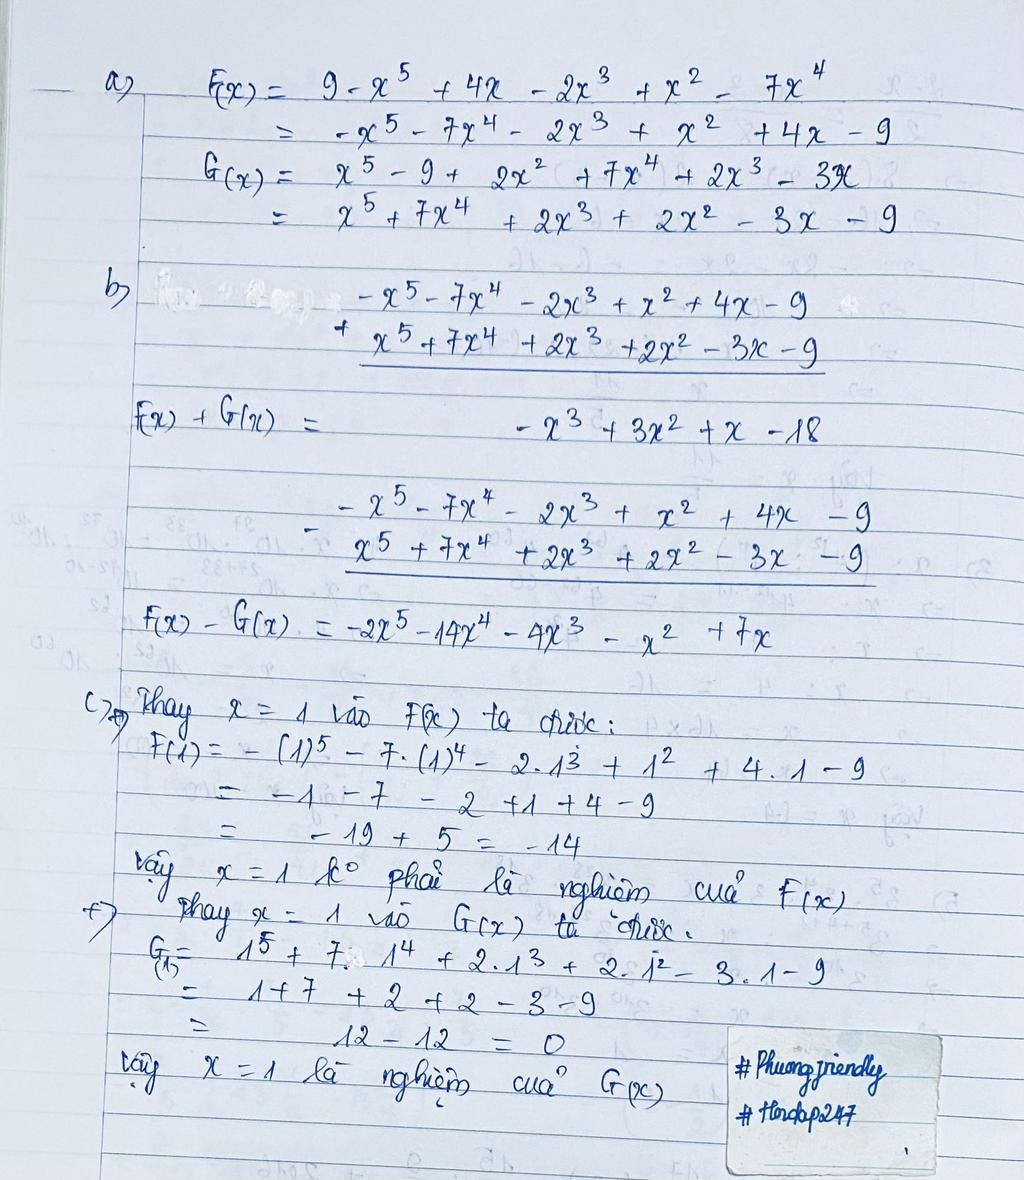 a) F(x) = 9 - x⁵ + 4x - 2x³ + x² - 7x⁴
= -x⁵ - 7x⁴ - 2x³ + x² + 4x - 9
G(x) = x⁵ - 9 + 2x² + 7x⁴ + 2x³ - 3x
= x⁵ + 7x⁴ + 2x³ + 2x² - 3x - 9
b) -x⁵ - 7x⁴ - 2x³ + x² + 4x - 9
+ x⁵ + 7x⁴ + 2x³ + 2x² - 3x - 9
F(x) + G(x) = - x³ + 3x² + x - 18
- x⁵ - 7x⁴ - 2x³ + x² + 4x - 9
- x⁵ + 7x⁴ + 2x³ + 2x² - 3x - 9
F(x) - G(x) = -2x⁵ - 14x⁴ - 4x³ - x² + 7x
c) +) Thay x = 1 vào F(x) ta được:
F(1) = - (1)⁵ - 7.(1)⁴ - 2.1³ + 1² + 4.1 - 9
= -1 - 7 - 2 + 1 + 4 - 9
= - 19 + 5 = -14
Vậy x = 1 k⁰ phải là nghiệm của F(x)
+) Thay x = 1 vào G(x) ta được.
G(1) = 1⁵ + 7. 1⁴ + 2.1³ + 2.1² - 3.1 - 9
= 1 + 7 + 2 + 2 - 3 - 9
= 12 - 12 = 0
Vậy x = 1 là nghiệm của G(x)
# Phuongfriendly
# Hoidap247